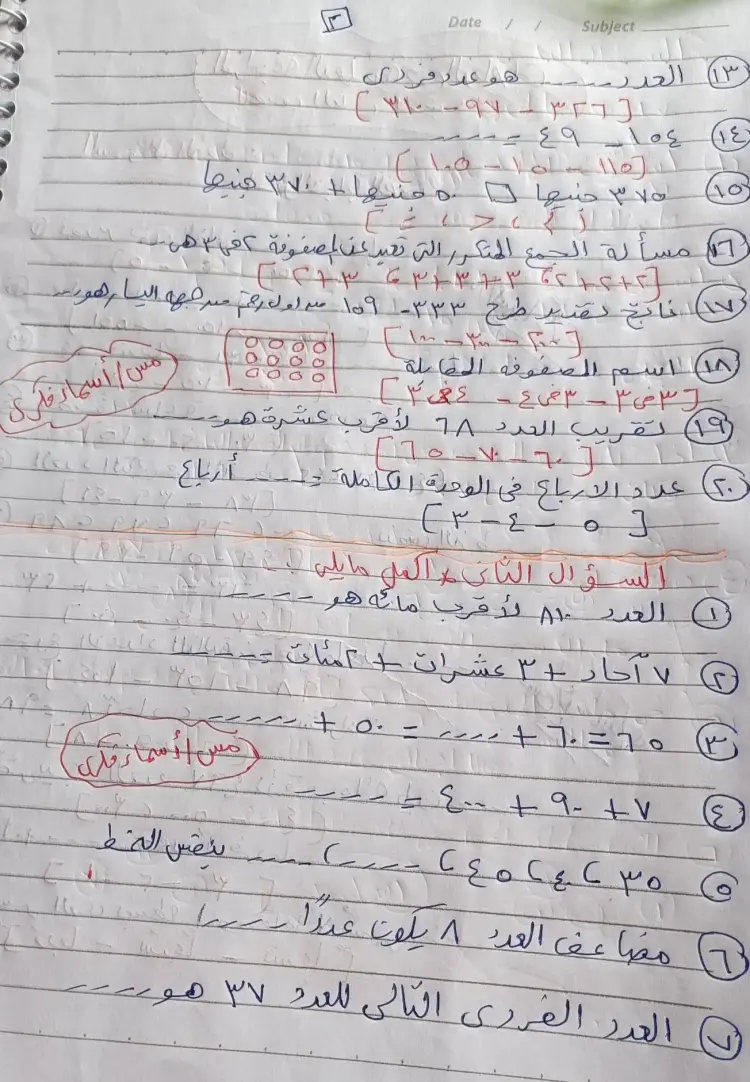 ٣
Date / / Subject
١٣ العدد ---- هو عدد فردى
[ ٣٢٦ - ٩٧ - ٣١٠ ]
١٤ ١٥٤ - ٤٩ = ----
[ ١١٥ - ١٥ - ١٠٥ ]
١٥ ٣٧٥ جنيها □ ٥٠ جنيها + ٣٧٠ جنيها
[ > ، < ، = ]
١٦ مسألة الجمع المتكرر التى تعبر عن المصفوفة ٢ فى ٣ هى --
[ ٢+٢+٢ ، ٣+٣+٣ ، ٣+٢ ]
١٧ ناتج تقدير طرح ٣٣٣ - ١٥٩ من أول رقم من جهه اليسار هو --
[ ٢٠٠ - ٣٠٠ - ١٠٠ ]
١٨ اسم الصفوفه المقابلة
[ ٣ فى ٣ - ٣ فى ٤ - ٤ فى ٣ ]
مس/أسماء فكرى
١٩ تقريب العدد ٦٨ لأقرب عشرة هو ----
[ ٦٠ - ٧٠ - ٦٥ ]
٢٠ عدد الارباع فى الوحدة الكاملة = ---- أرباع
[ ٥ - ٤ - ٣ ]
السؤال الثانى * أكمل ما يلى :
١ العدد ٨١٠ لأقرب مائه هو ----
٢ ٧ آحاد + ٣ عشرات + ٢ مئات = ----
٣ ٦٥ = ٦٠ + ---- = ٥٠ + ----
مس/أسماء فكرى
٤ ٧ + ٩٠ + ٤٠٠ = ----
٥ ٣٥ ، ٤٠ ، ٤٥ ، ---- ، ---- بنفس النمط
٦ مضاعف العدد ٨ يكون عددًا ----
٧ العدد الفردى التالى للعدد ٣٧ هو ----